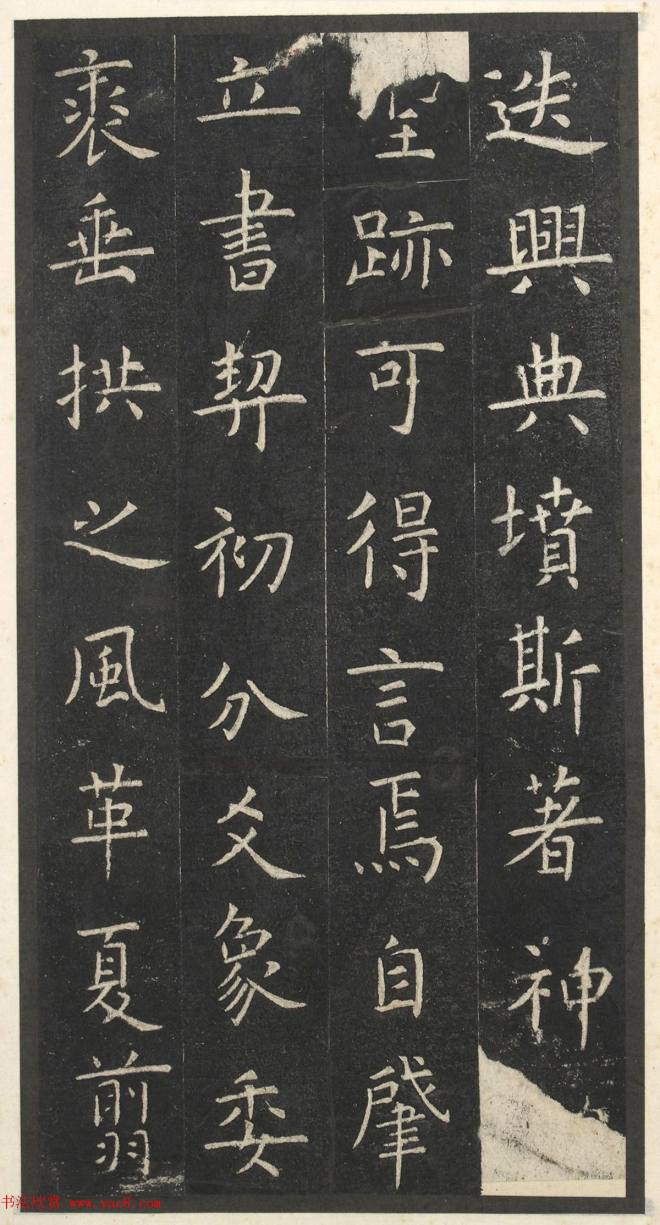 迭興典墳斯著神
聖跡可得言焉自肇
立書契初分爻象委
裘垂拱之風革夏翦
www.yac8.com